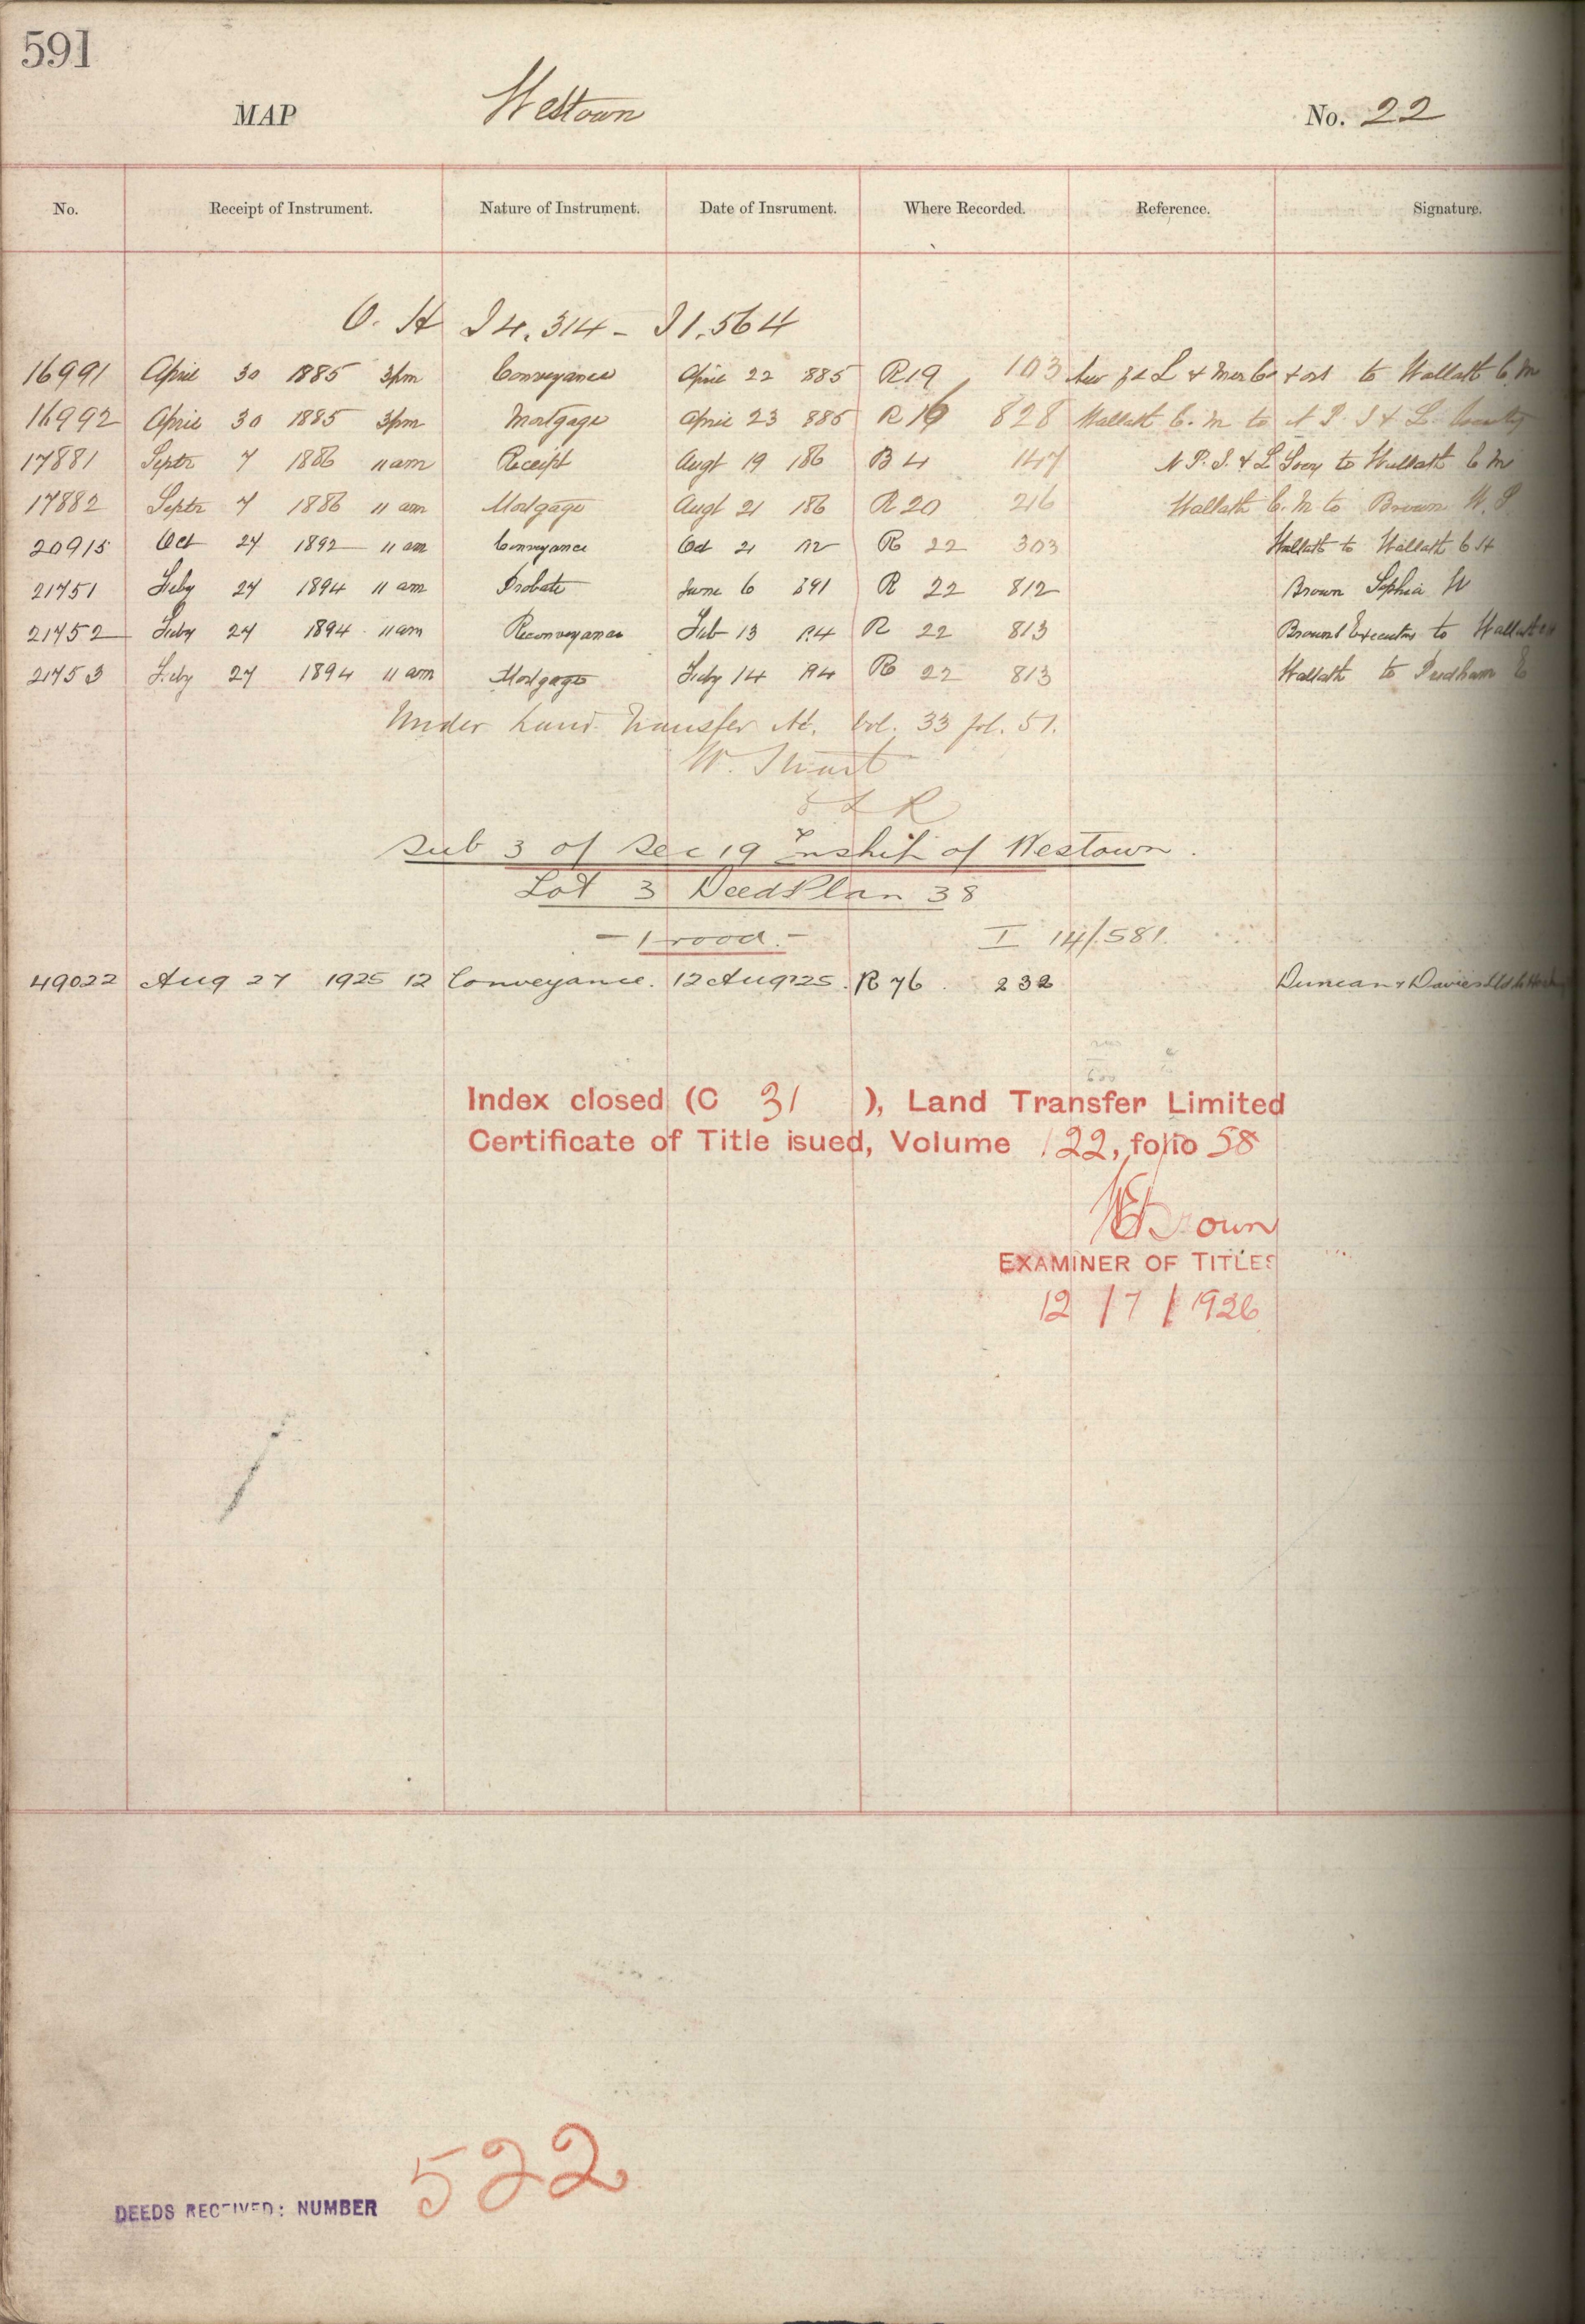 591
MAP Westown No. 22
No. Receipt of Instrument. Nature of Instrument. Date of Insrument. Where Recorded. Reference. Signature.
O. H I 4. 314 - I 1. 564
16991 April 30 1885 3pm Conveyance April 22 885 R19 103 & L & Mer Co & ors to Wallath C. M
16992 April 30 1885 3pm Mortgage April 23 885 R 16 828 Wallath C. M to N P. I & L. Society
17881 Septr 7 1886 11 am Receipt Augt 19 186 B 4 147 N P. I. & L Socy to Wallath C M
17882 Septr 7 1886 11 am Mortgage Augt 21 186 R 20 216 Wallath C. M. to Brown W. S
20915 Oct 24 1892 11 am Conveyance Oct 21 92 R 22 303 Wallath to Wallath C H
21751 Feby 27 1894 11 am Probate June 6 891 R 22 812 Brown Sophia W
21752 Feby 27 1894 11 am Reconveyance Feb 13 94 R 22 813 Browns Executors to Wallath
21753 Feby 27 1894 11 am Mortgage Feby 14 94 R 22 813 Wallath to Prudham E
Under Land Transfer Act. Vol. 33 fol. 51.
W. Stuart
D L R
Sub 3 of Sec 19 Tnship of Westown.
Lot 3 Deeds Plan 38
- 1 rood. -
I 14/581.
49022 Aug 27 1925 12 Conveyance. 12 Aug 25. R 76. 232 Duncan & Davies Ltd to
Index closed (C 31 ), Land Transfer Limited
Certificate of Title isued, Volume 122, folio 58
Brown
EXAMINER OF TITLES
12 / 7 / 1926
DEEDS RECEIVED: NUMBER 522